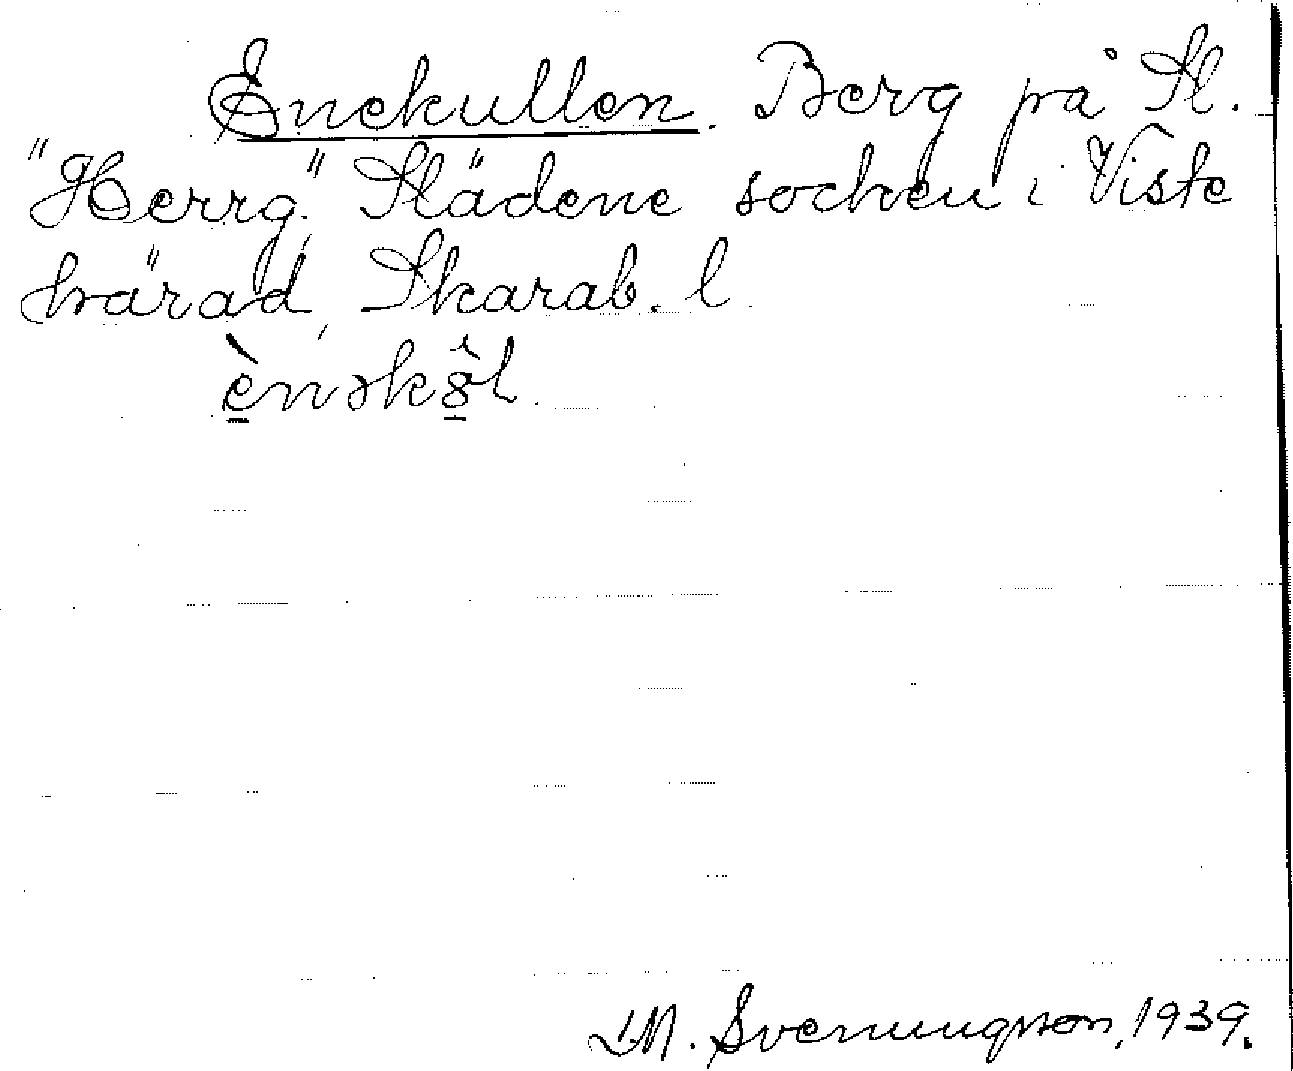 Enekullen. Berg på Sl.
"Herrg." Slädene socken i Viste
härad, Skarab. l.
ènəkŝl.
I.M. Svenungsson, 1939.